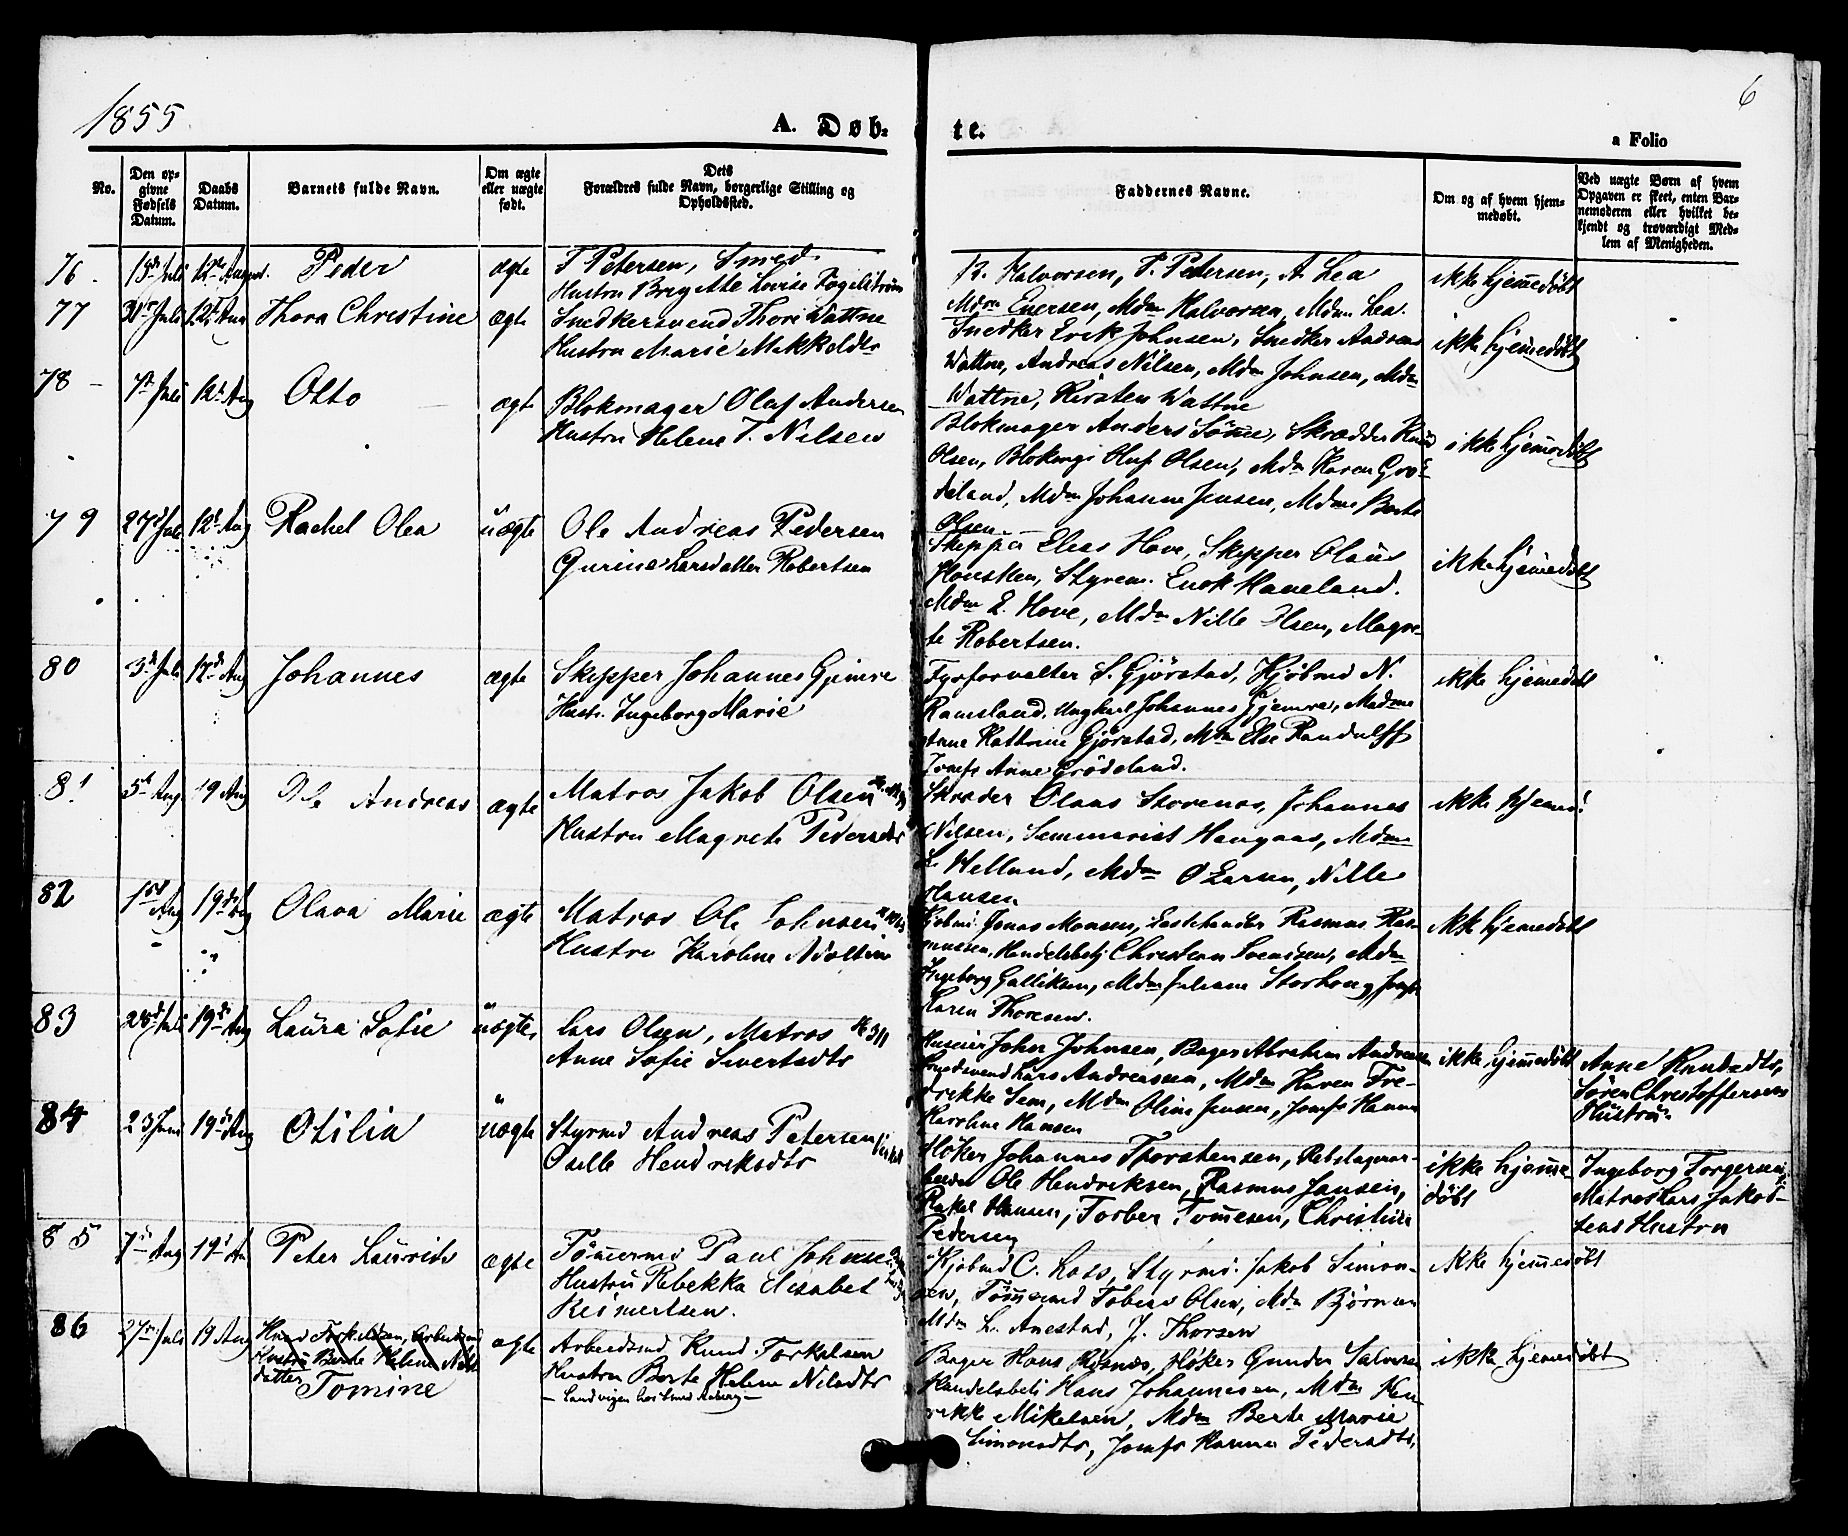 1855
6
A. Døb-
te.
a Folio
No.
Den op-
givne
Fødsels
Datum.
Daabs
Datum.
Barnets fulde Navn.
Om ægte
eller uægte
født.
Dets
Forældres fulde Navn, borgerlige Stilling og
Opholdssted.
Faddernes Navne.
Om og af hvem hjem-
medøbt.
Ved uægte Børn af hvem
Opgaven er skeet, enten Bar-
nemoderen eller hvilket be-
kjendt og troværdigt Med-
lem af Menigheden.
76. Juli 12te August. Peder ægte
T Petersen, Smed
Hustru Brigitte Lovise
B. Halvorsen, T. Petersen, A. Lea
Mdm Enersen, Mdm Halvorsen, Mdm Lea.
ikke hjemmedøbt
77 Juli 12te Aug Thora Christine ægte
Snedkersvend Thore Wattne
Hustru Marie Mikkelsdtr
Snedker Erik Johnsen, Snedker
Wattne, Andreas Nilsen, Mdm Johnsen, Mdm
Wattne, Kirsten Wattne
ikke hjemmedøbt
78 – 7de Juli 12te Aug Otto ægte
Blokmager Oluf Andersen
Hustru Helene T. Nilsen
Blokmager Anders Sömme, Skrædder
Olsen, Blokmgr Oluf Olsen, Mdm Karen Grö-
deland, Mdm Johanne Jensen, Mdme Berte
Olsen
ikke hjemmedøbt
79 27d Juli 12d Aug Rachel Olea uægte
Ole Andreas Pedersen
Gurine Larsdatter Robertsen
Skipper Elias Hove, Skipper Olaus
Housken, Styrm. Enok Haveland.
Mdm E. Hove, Mdm Nille Olsen, Magre-
te Robertsen.
ikke hjemmedøbt
80 3d Juli 12d Aug Johannes ægte
Skipper Johannes Gjemre
Hustr. Ingeborg Marie
Fyrforvalter S. Gjørstad, Kjøbmd N.
Ramsland, Ungkarl Johannes Gjemre, Madme
Kathrine Gjørstad, Mdm Else Randulff
Jomfr Anne Grødeland.
ikke hjemedøbt
81 5d Aug 19 Aug Ole Andreas ægte
Matros Jakob Olsen
Hustru Magrete Pedersdtr
Skræder Olaus Storenos, Johannes
Nilsen, Seminarist Haugaas, Mdm
L. Helland, Mdm O Larsen, Nille
Hansen
ikke hjemd!
82 1st Aug 19de Aug Olava Marie ægte
Matros Ole Johnsen
Hustru Karoline
Kjøbmd. Jonas Monsen, Rasmus Ras-
mussen, Handelsbetj Christian Svendsen, Mdm
Ingeborg Gulliksen, Mdm Juliane Storhoug, Jomfr
Karen Thoresen.
ikke hjemedøbt
83 28d Juli 19de Aug Laura Sofie uægte
Lars Olsen, Matros
Anne Sofie Sivertsdtr
Huseier Johan Johnsen, Bager Abraham Andreasen
Lars Andreassen, Mdm Karen Fre-
drikke Sem, Mdm Oline Jensen, Jomfr Hanna
Karoline Hansen
ikke hjemmedøbt
Anne Knudsdtr,
Søren Christoffersens
Hustru
84 23 Juni 19de Aug Otilia uægte
Styrmd Andreas Petersen
Oselle Hendriksdtr
Høker Johannes Thorstensen, Rebslagerar-
beider Ole Hendriksen, Rasmus Jansen,
Rakel Hansen, Torber Tommesen, Christine
Pedersen
ikke hjemme-
døbt
Ingeborg Torgersen
Matros Lars Jakob-
sens Hustru
85 7de Aug 19d Au Peter Laurits ægte
Tömmermd Paul Johnsen
Hustru Rebekka Elisabet
Reimertsen.
Kjøbmd C. Lass, Styrmd. Jakob Simon-
sen, Tömmermd Tobias Olsen, Mdm Bjørnsen
Mdm L. Anestad, J. Thorsen
ikke hjemmedøbt
86 27de Juli 19 Aug Knud Torkeldsen, Arbeidsmd
Hustru Berte Helene Nils
datter
Tomine ægte
Arbeidsmd Knud Torkelsen
Hustru Berte Helene Nilsdtr
Bager Hans Rosnæs, Høker Gunder Salvesen
Handelsbetj Hans Johannesen, Mdm Hen-
rikke Mikelsen, Mdm Berte Marie
Simonsdtr, Jomfr Hanna Pedersdtr,
ikke hjemedøbt